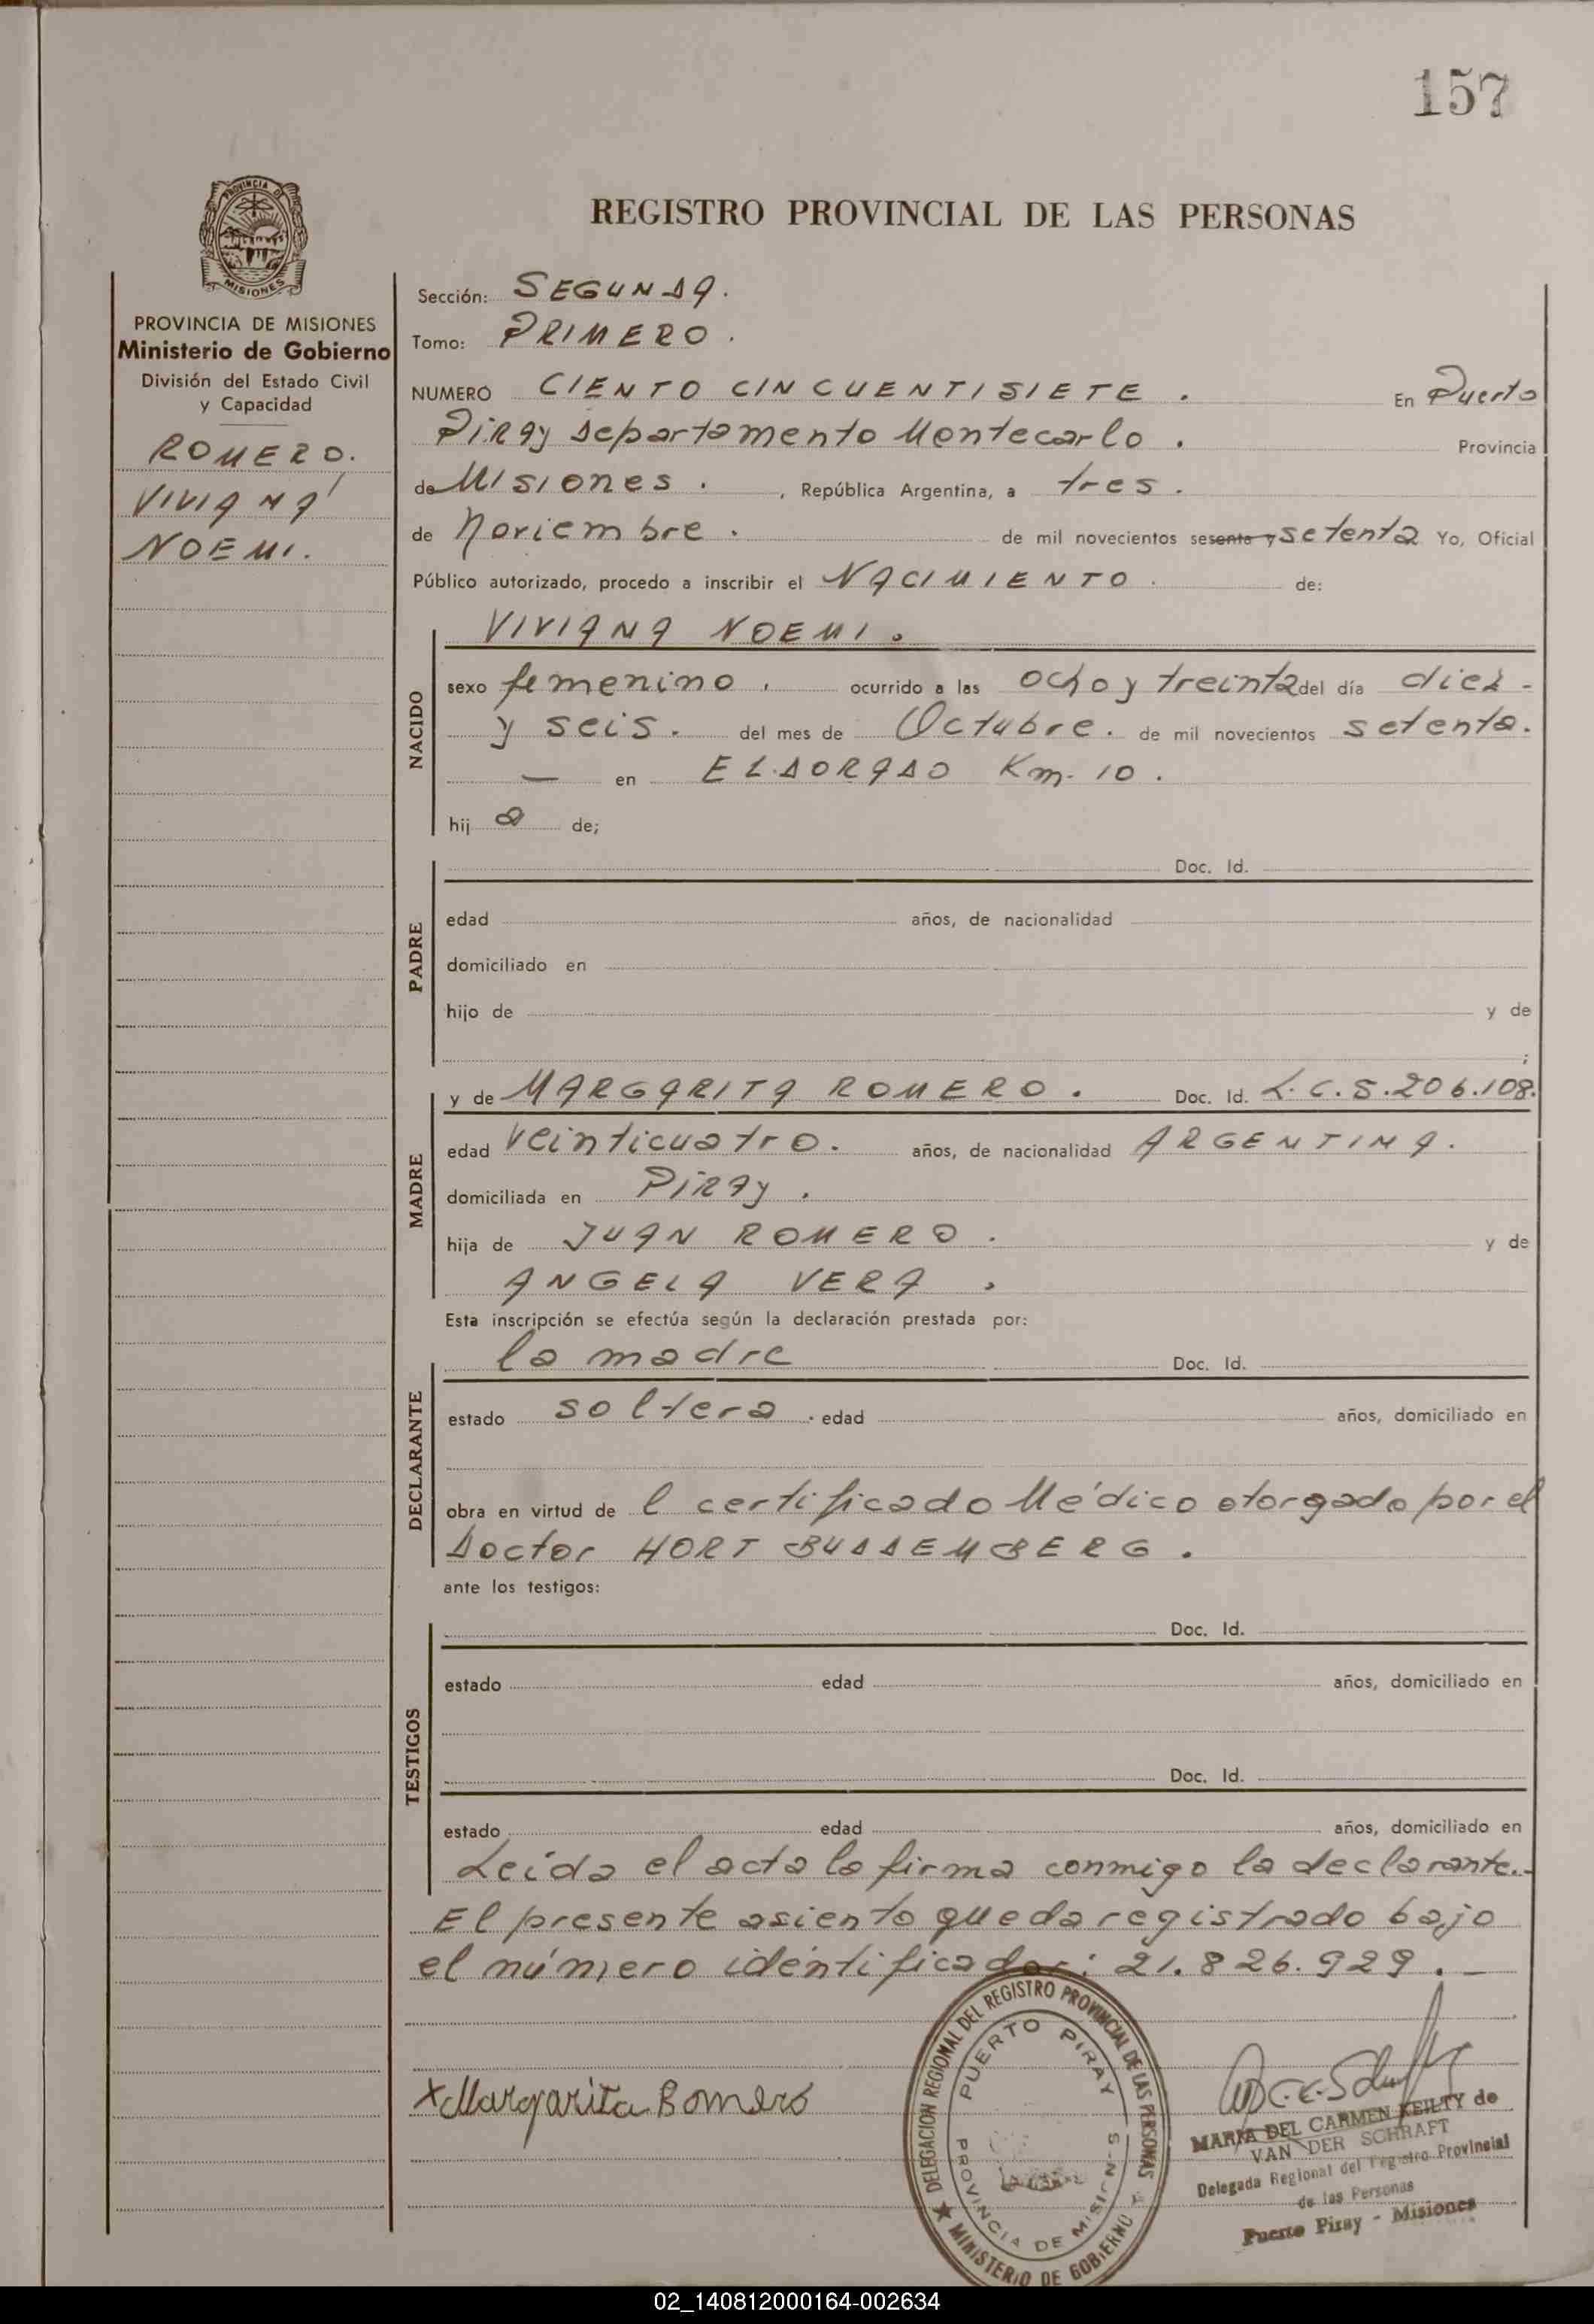 157
PROVINCIA DE
MISIONES
REGISTRO PROVINCIAL DE LAS PERSONAS
PROVINCIA DE MISIONES
Ministerio de Gobierno
División del Estado Civil
y Capacidad
ROMERO.
VIVIANA
NOEMI.
Sección: SEGUNDA.
Tomo: PRIMERO.
NUMERO CIENTO CINCUENTISIETE. En Puerto
Piray Departamento Montecarlo. Provincia
de Misiones. , República Argentina, a tres.
de Noviembre. de mil novecientos sesenta y setenta Yo, Oficial
Público autorizado, procedo a inscribir el NACIMIENTO. de:
NACIDO
VIVIANA NOEMI.
sexo femenino. ocurrido a las ocho y treinta del día diez -
y seis. del mes de Octubre. de mil novecientos setenta.
— en ELDORADO Km. 10.
hij a de;
PADRE
Doc. Id.
edad años, de nacionalidad
domiciliado en
hijo de y de
;
MADRE
y de MARGARITA ROMERO. Doc. Id. L.C.5.206.108.
edad veinticuatro. años, de nacionalidad ARGENTINA.
domiciliada en Piray.
hija de JUAN ROMERO. y de
ANGELA VERA.
Esta inscripción se efectúa según la declaración prestada por:
DECLARANTE
la madre Doc. Id.
estado soltera. edad años, domiciliado en
obra en virtud de l certificado Médico otorgado por el
Doctor HORT BUDDEMBERG.
ante los testigos:
TESTIGOS
Doc. Id.
estado edad años, domiciliado en
Doc. Id.
estado edad años, domiciliado en
Leída el acta la firma conmigo la declarante.-
El presente asiento queda registrado bajo
el número identificador: 21.826.929.—
DELEGACION REGIONAL DEL REGISTRO PROVINCIAL DE LAS PERSONAS
PUERTO PIRAY
PROVINCIA DE MISIONES
★ MINISTERIO DE GOBIERNO
x Margarita Romero
MARIA DEL CARMEN KEILTY de
VAN DER SCHRAFT
Delegada Regional del Registro Provincial
de las Personas
Puerto Piray - Misiones
02_140812000164-002634